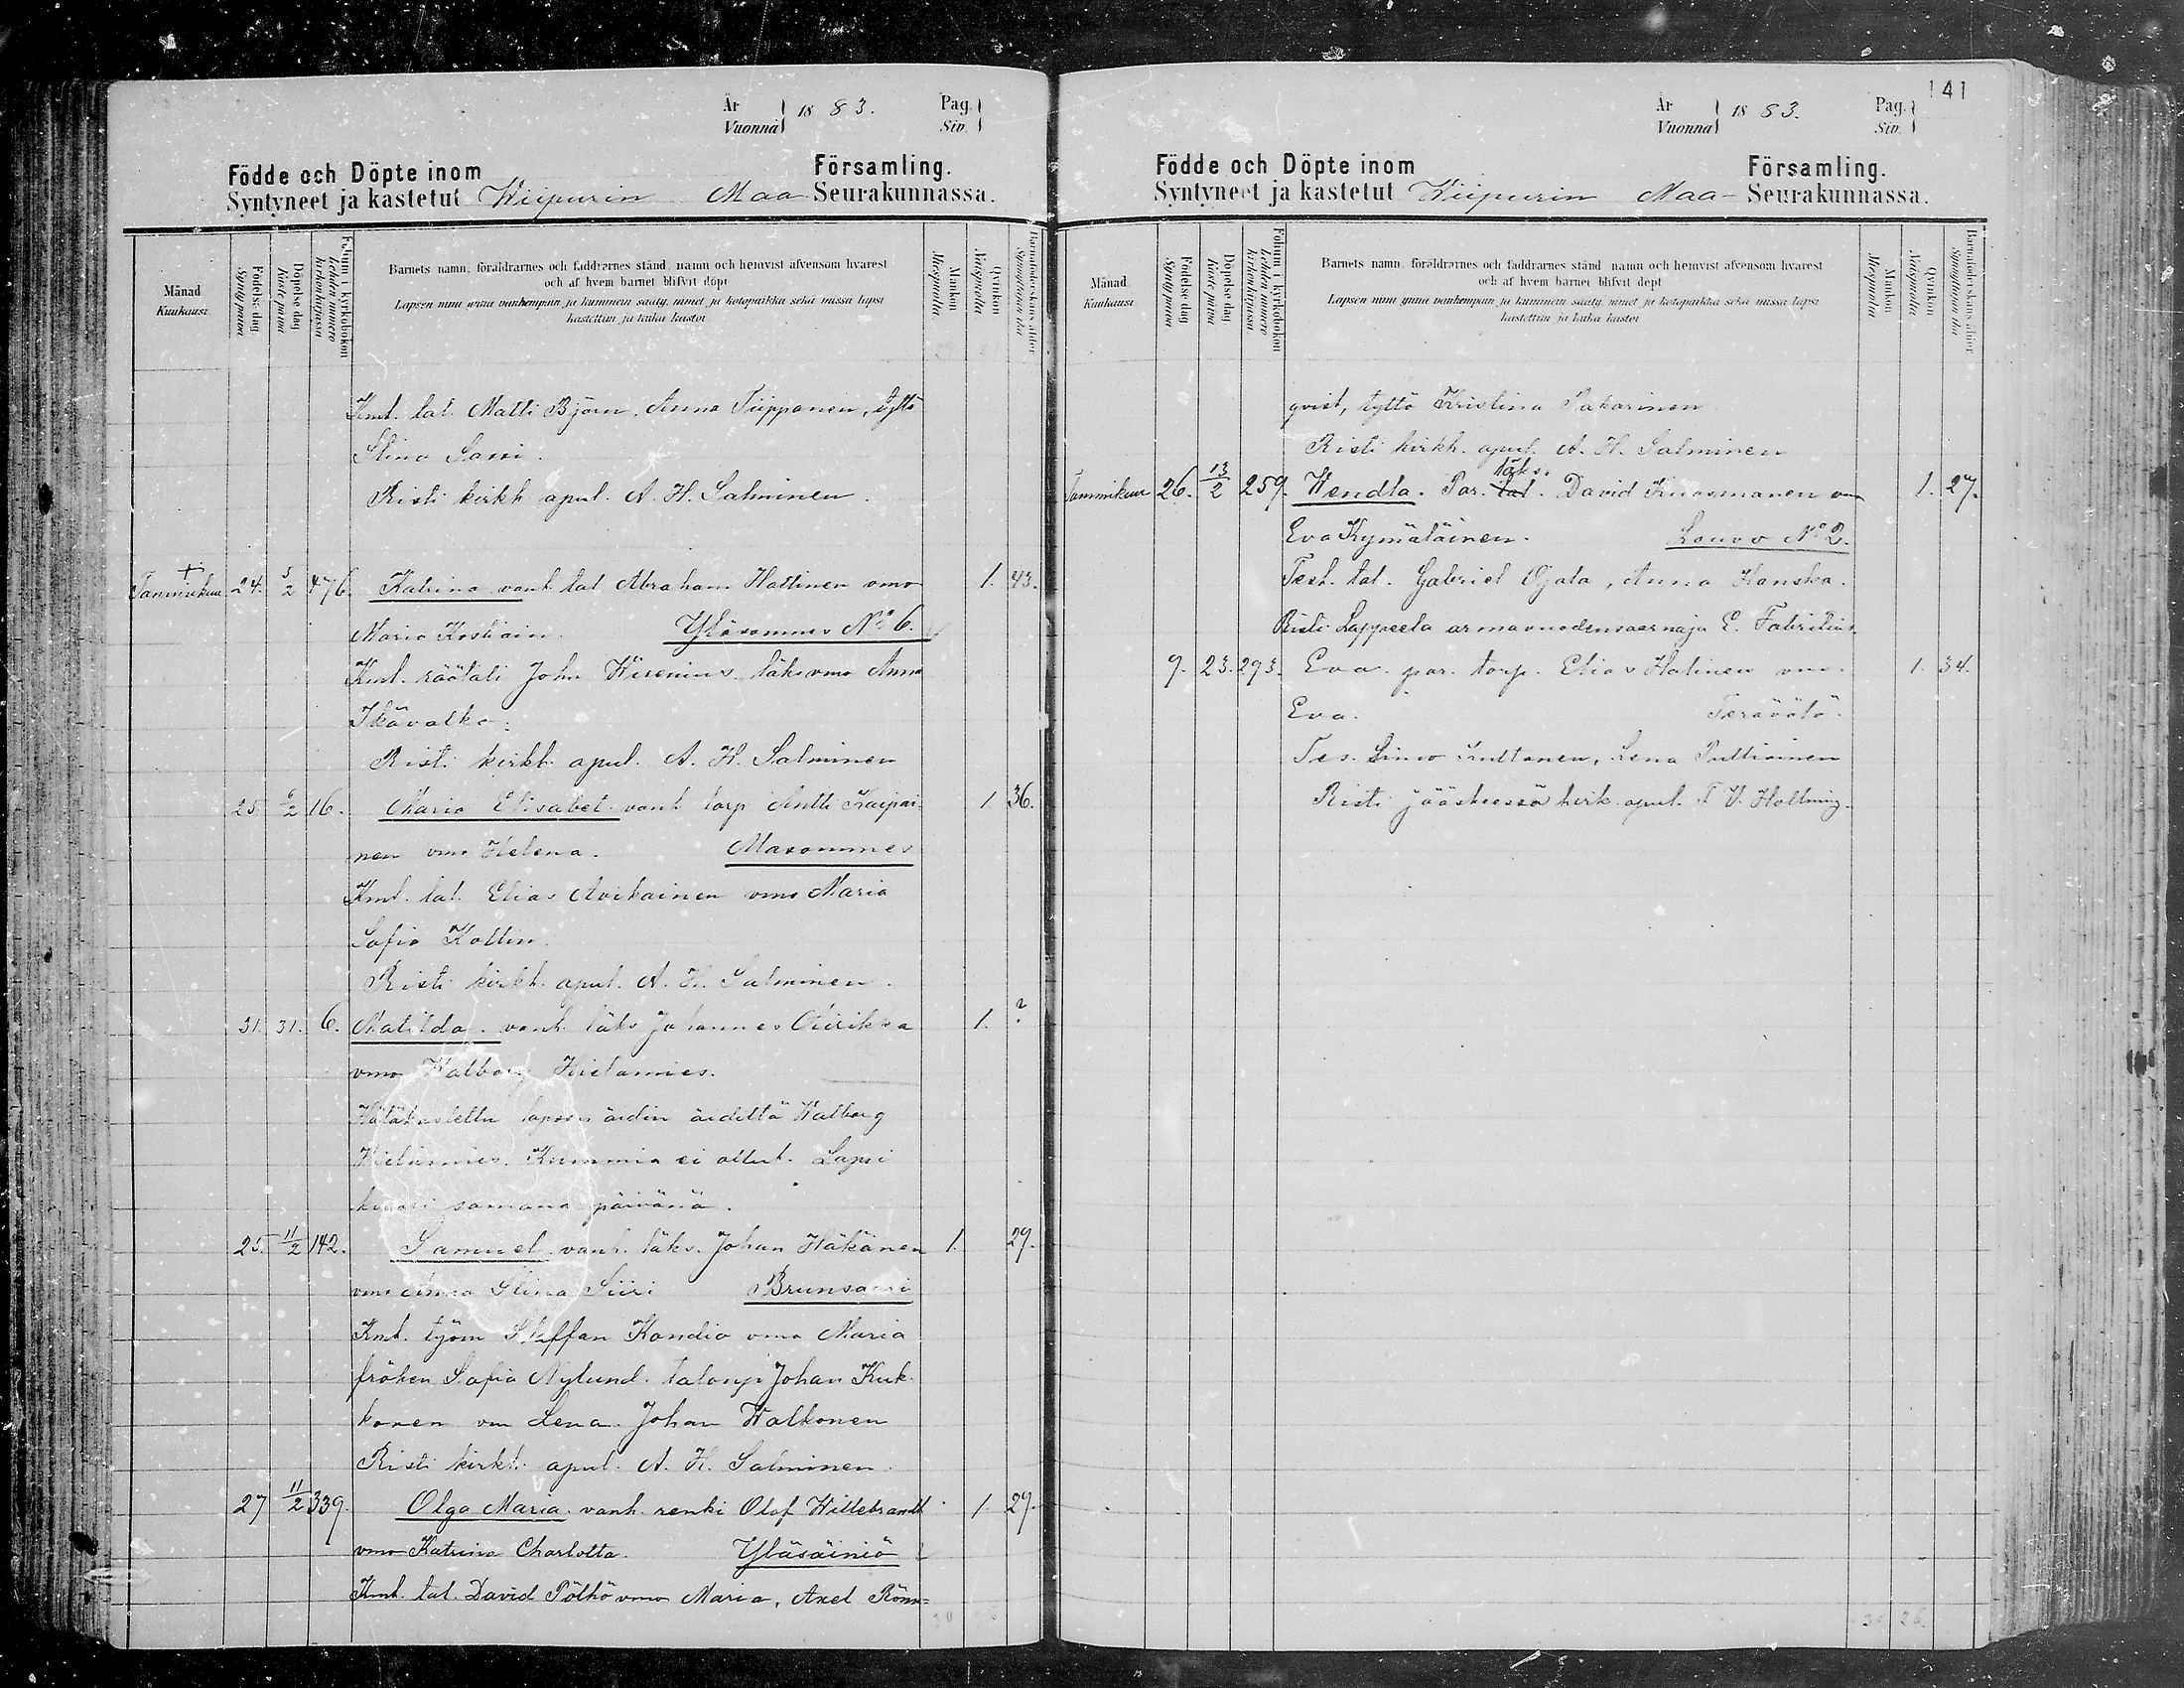 År
Vuonna 1883. Pag.
Siv.
Födde och Döpte inom Församling.
Syntyneet ja kastetut Wiipurin Maa Seurakunnassa.
Månad
Kuukausi
Födelse dag
Synty päivä
Döpelse dag
Kaste päivä
Folium i kyrkoboken
Lehden numero kirkonkirjassa
Barnets namn, föräldrarnes och faddrarnes stånd, namn och hemvist äfvensom hvarest
och af hvem barnet blifvit döpt
Lapsen nimi ynnä vanhempain ja kummein sääty, nimet ja kotopaikka sekä missä lapsi
kastettiin ja kuka kastoi
Mankön
Miespuolta
Qvinkön
Naispuolta
Barnaföderskans ålder
Synnyttäjän ikä
Kmt. tal. Matti Björn, Anna Tiippanen, tyttö
Stina Sassi.
Risti kirkh. apul. A. H. Salminen.
+
Tammikuu 24. 5/2 476. Katrina vanh. tal Abraham Hattinen vmo 1. 43.
Maria Koskain. Yläsommes No 6.
Kmt. räätäli John Wirenius, läks vmo Anna
Ikävalko.
Risti kirkh. apul. A. H. Salminen
25 6/2 16. Maria Elisabet vanh torp Antti Kaipai- 1 36.
nen vmo Helena. Masommes
Kmt. tal. Elias Avikainen vmo Maria
Sofia Kollin.
Risti kirkh. apul. A. H. Salminen.
31. 31. 6. Matilda. vanh. läks Johannes 1. ?
vmo Walborg Hietamies.
Hätäkastettu lapsen äidin äidiltä Walborg
Hietamies. Kummia ei ollut. Lapsi
kuoli samana päivänä.
25. 11/2 142. Samuel vanh. läks. Johan Häkänen 1. 29.
vmo Anna Stina Siiri Brunsaari
Kmt. työm Staffan Kandia vmo Maria
fröken Sofia Nylund. talonp Johan Kuk-
konen vm Lena. Johan Walkonen
Risti kirkh. apul. A. H. Salminen.
27 11/2 339. Olga Maria. vanh. renki Olof Willebrandt 1. 29.
vmo Katrina Charlotta. Yläsäiniö
Kmt. tal. David Pölhö vmo Maria, Axel Rönn=
141
År
Vuonna 1883. Pag.
Siv.
Födde och Döpte inom Församling.
Syntyneet ja kastetut Wiipurin Maa- Seurakunnassa.
Månad
Kuukausi
Födelse dag
Synty päivä
Döpelse dag
Kaste päivä
Folium i kyrkoboken
Lehden numero kirkonkirjassa
Barnets namn, föräldrarnes och faddrarnes stånd, namn och hemvist äfvensom hvarest
och af hvem barnet blifvit döpt
Lapsen nimi ynnä vanhempain ja kummein sääty, nimet ja kotopaikka sekä missä lapsi
kastettiin ja kuka kastoi
Mankön
Miespuolta
Qvinkön
Naispuolta
Barnaföderskans ålder
Synnyttäjän ikä
qvist, tyttö Kristina Pakarinen
Risti kirkh. apul. A. H. Salminen
läks.
Tammikuu 26. 13/2 259. Wendla. Par. tal. David Kuosmanen vm 1. 27.
Eva Kymäläinen. Louvo No 2.
Test. tal. Gabriel Ojala, Anna Hanska.
Risti Lappeela armovuodensaarnaja E. Fabritius.
9. 23. 293. Eva par. torp. Elias Hatinen vmo 1. 34.
Eva. Terävälä.
Tes. Simo Kultanen, Lena Pulliainen
Risti jääskessä kirk. apul. T V. Hollming.
30 26.